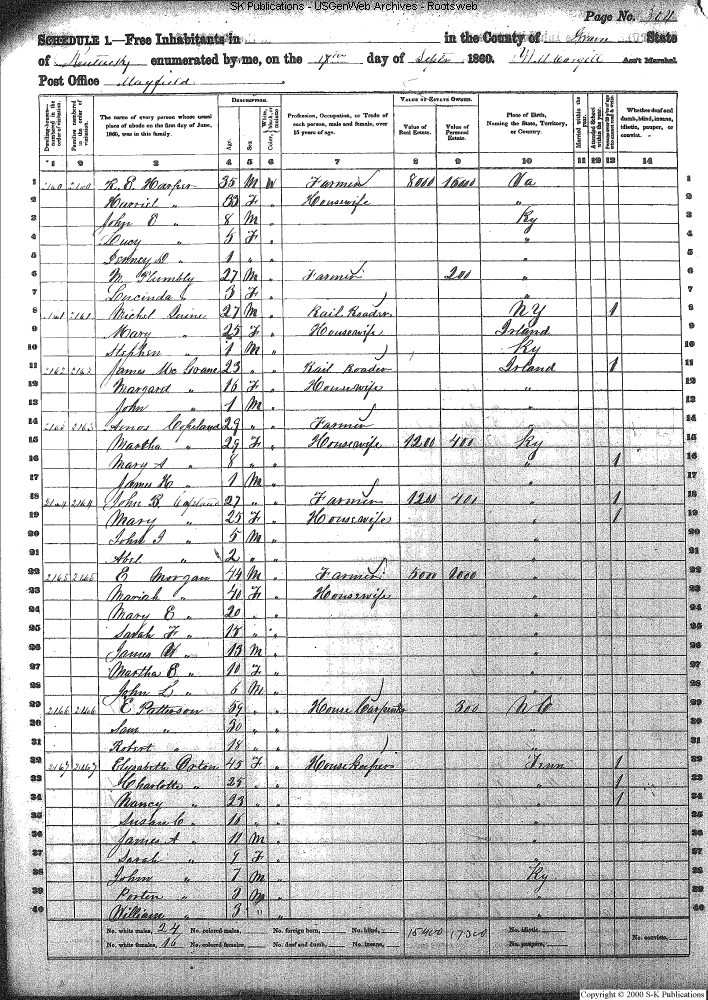 SK Publications - USGenWeb Archives - Rootsweb
Page No. 304
SCHEDULE 1.—Free Inhabitants in in the County of Graves State
of Kentucky enumerated by me, on the 18th day of Septr 1860. Ass't Marshal.
Post Office Mayfield
Dwelling-houses—numbered in the order of visitation.
Families numbered in the order of visitation.
The name of every person whose usual place of abode on the first day of June, 1860, was in this family.
DESCRIPTION.
Age.
Sex.
Color, White, black, or mulatto.
Profession, Occupation, or Trade of each person, male and female, over 15 years of age.
VALUE OF ESTATE OWNED.
Value of Real Estate.
Value of Personal Estate.
Place of Birth, Naming the State, Territory, or Country.
Married within the year.
Attended School within the year.
Whether deaf and dumb, blind, insane, idiotic, pauper, or convict.
1 2 3 4 5 6 7 8 9 10 11 12 13 14
1 2160 2160 R. E. Harper 35 M W Farmer 8000 15000 Va 1
2 Harriel " 33 F " Housewife " 2
3 John D " 8 M " Ky 3
4 Lucy " 5 F " " 4
5 " 1 " " " 5
6 Plumbly 27 M " Farmer 200 " 6
7 Lucinda " 3 F " " 7
8 2161 2161 Michel 27 M " Rail Roader NY 1 8
9 Mary " 25 F " Housewife Irland 9
10 Stephen " 1 M " Ky 10
11 2162 2162 James Mc 23 " " Rail Roader Irland 1 11
12 Margard " 16 F " Housewife " 12
13 John " 1 M " 13
14 2163 2163 Amos Copeland 29 " " Farmer 14
15 Martha " 29 F " Housewife 1200 400 Ky 15
16 Mary A " 8 " " " 1 16
17 James H " 1 M " 17
18 2164 2164 John B Copeland 27 " " Farmer 1200 400 " 1 18
19 Mary " 25 F " Housewife " 1 19
20 John J " 5 M " " 20
21 Abel " 2 " " " 21
22 2165 2165 E Morgan 44 M " Farmer 5000 1000 " 22
23 Mariah " 40 F " Housewife " 23
24 Mary E " 20 " " " 24
25 Sarah F " 18 " " " 25
26 James W " 13 M " " 26
27 Martha E " 10 F " " 27
28 John L " 6 M " " 28
29 2166 2166 E Patterson 59 " " House Carpenter 300 N C 29
30 Sam " 30 " " " 30
31 Robert " 18 " " " 31
32 2167 2167 Elizabeth Orton 45 F " House keeper Tenn 1 32
33 Charlotte " 25 " " " 1 33
34 Nancy " 23 " " " 1 34
35 Susan C " 16 " " " 35
36 James A " 11 M " " 36
37 Sarah " 9 F " " 37
38 John " 7 M " Ky 38
39 Porten " 3 M " " 39
40 William " 3 " " " 40
No. white males, 24 No. colored males, No. foreign born, No. blind, 15400 17300 No. idiotic, No. convicts,
No. white females, 16 No. colored females, No. deaf and dumb, No. insane, No. paupers,
Copyright © 2000 S-K Publications